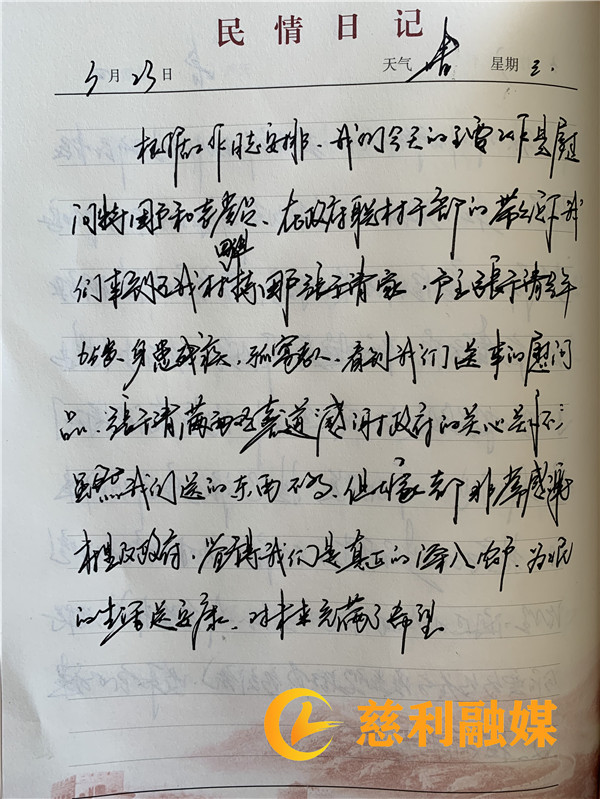 民情日记
5月23日 天气 星期三.
根据工作日志安排、我们今天的主要工作是慰
问特困户和老党员、在政府联村干部的带领下我
们来到了我村特困户张子清家、户主张子清今年
65岁、身患残疾、孤寡老人、看到我们送来的慰问
品、张子清满面喜道感谢政府的关心
虽然我们送的东西不多、但大家都非常感谢
村里及政府、觉得我们是真正的深入农户、为民
的生活送安康、对未来充满了希望
慈利融媒